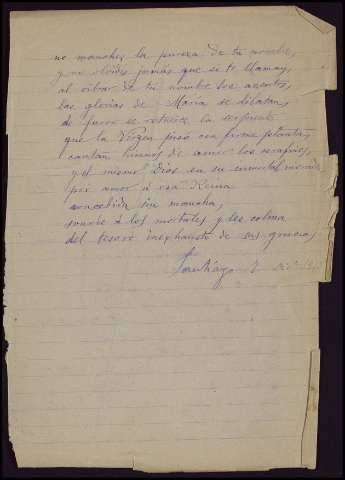 no manches la pureza de tu nombre,
y no olvides jamás que si te llaman,
al vibrar de tu nombre los acentos,
las glorias de María se dilatan,
de furor se retuerce la serpiente
que la Virgen pisó con firme planta,
cantan himnos de amor los serafines,
y el mismo Dios en su inmortal morada
por amor á esa Reina
concebida sin mancha,
sonríe á los mortales y les colma
del tesoro inexhausto de sus gracias.
Santiago